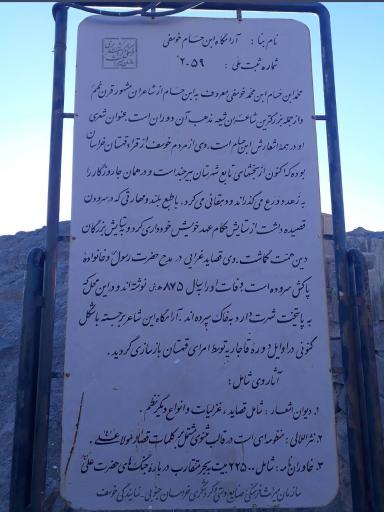 نام بنا : آرامگاه ابن حسام خوسفی
شماره ثبت ملی : ۲۰۵۹
محمد ابن حسام ابن محمد خوسفی معروف به ابن حسام از شاعران مشهور قرن نهم
و از جمله بزرگترین شاعران شیعه مذهب آن دوران است. عنوان شعری
او در همه اشعارش ابن حسام است. وی از مردم خوسف از قراء قهستان خراسان
بوده که اکنون از بخشهای تابع شهرستان بیرجند است و در همان جا روزگار را
به زهد و ورع می گذراند و دهقانی می کرد. با طبع بلند و مهارتی که در سرودن
قصیده داشت از ستایش حکام عهد خویش خودداری کرد و به ستایش بزرگان
دین همت گماشت. وی قصاید غرایی در مدح حضرت رسول و خانواده
پاکش سروده است وفات او را بسال ۸۷۵ ه.ق نوشته اند و در این محل که
به پایتخت شهرت دارد به خاک سپرده اند. آرامگاه این شاعر برجسته به شکل
کنونی در اوایل دوره قاجاریه توسط امرای قهستان بازسازی گردید.
آثار وی شامل :
۱. دیوان اشعار : شامل قصاید، غزلیات و انواع دیگر نظم.
۲. نثراللالی : منظومه ای است در قالب مثنوی مشتمل بر کلمات قصار مولا علی
۳. خاوران نامه : شامل ۲۲۵۰۰ بیت به بحر متقارب درباره جنگ های حضرت علی
سازمان میراث فرهنگی صنایع دستی و گردشگری خراسان جنوبی - نمایندگی خوسف